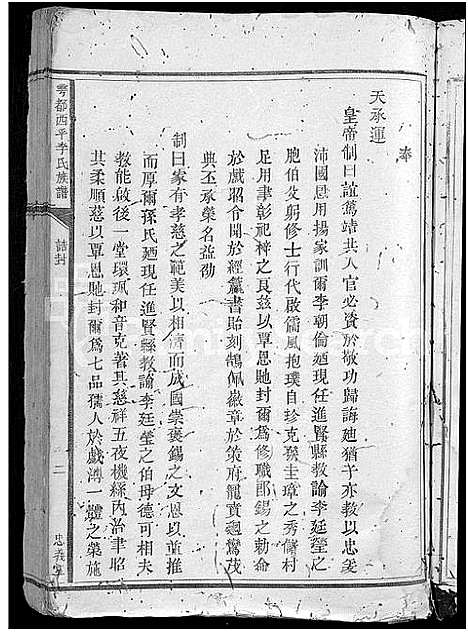 奉
天承運
皇帝制曰誼篤靖共人官必資於敬功歸誨廸猶子亦教以忠爰
沛國恩用揚家訓爾李朝倫廼現任進賢縣教諭李廷瑩之
胞伯父躬修士行代啟儒風抱璞自珍克發圭璋之秀儲材
足用聿彰杞梓之良茲以覃恩貤封爾為修職郎錫之勅命
於戲昭令聞於經籯書貽刻鵠佩徽章於策府寵賁廻鸞茂
典丕承榮名益劭
制曰家有孝慈之範美以相濟而成國崇褒錫之文恩以並推
而厚爾孫氏廼現任進賢縣教諭李廷瑩之伯母德可相夫
教能啟後一堂環珮和音克著其慈祥五夜機絲內治聿昭
其柔順茲以覃恩貤封爾為七品孺人於戲溥一體之榮施
雩都西平李氏族譜
誥封
二
忠義堂